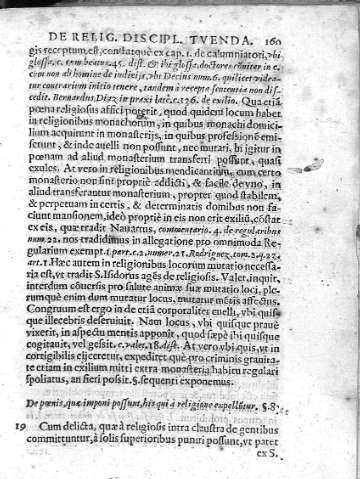 DE RELIG. DISCIPL. TVENDA. 160
gis receptum est, constatquè ex cap. 1. de calumniatori, vbi
glossa, c. cum beatus. 45. dist. & ibi glossa, doctores cõiter in c.
cum non ab homine de iudicijs, vbi Decius num. 6. qui licet videa-
tur contrarium initio tenere, tandem à recepta sententia non dis-
cedit. Bernardus Diaz in praxi latè. c. 136. de exilio. Qua etiã
pœna religiosus affici poterit, quod quidem locum habet
in religionibus monachorum, in quibus monachi domici-
lium acquirunt in monasterijs, in quibus professionẽ emi-
serunt, & inde auelli non possunt, nec mutari. hi igitur in
pœnam ad aliud monasterium transferri possunt, quasi
exules. At vero in religionibus mendicantiũ, cum certo
monasterio non sint propriè addicti, & facile de vno, in
aliud transferantur monasterium, propter quod stabilem,
& perpetuam in certis, & determinatis domibus non fa-
ciunt mansionem, ideò propriè in eis non erit exiliũ, cõstat
ex eis, quæ tradit Nauarrus, commentario. 4. de regularibus
num. 22. nos tradidimus in allegatione pro omnimoda Re-
gularium exempt. 1. part. c. 2. numer. 21. Rodriguez. tom. 2. q. 22.
art. 1. Hæc autem in religionibus locorum mutatio necessa-
ria est, vt tradit S. Isidorus agẽs de religiosis. Valet, inquit,
interdum cõuersis pro salute animæ suæ mutatio loci, ple-
rumquè enim dum mutatur locus, mutatur mẽtis affectus.
Congruum est ergo inde etiã corporaliter euelli, vbi quis-
que illecebris deseruiuit. Nam locus, vbi quisque prauè
vixerit, in aspectu mentis apponit, quod sæpè ibi quisque
cogitauit, vel gessit. c. valet. 18. dist. At vero vbi quis, vt in
corrigibilis eijceretur, expediret què pro criminis grauita-
te etiam in exilium mitti extra monasteria habitu regulari
spoliatus, an fieri possit. §. sequenti exponemus.
De pœnis, quæ imponi possunt, his qui à religione expellũtur. §. 8.
19 Cum delicta, quæ à religiosis intra claustra degentibus
committuntur, à solis superioribus puniri possunt, vt patet
ex S.